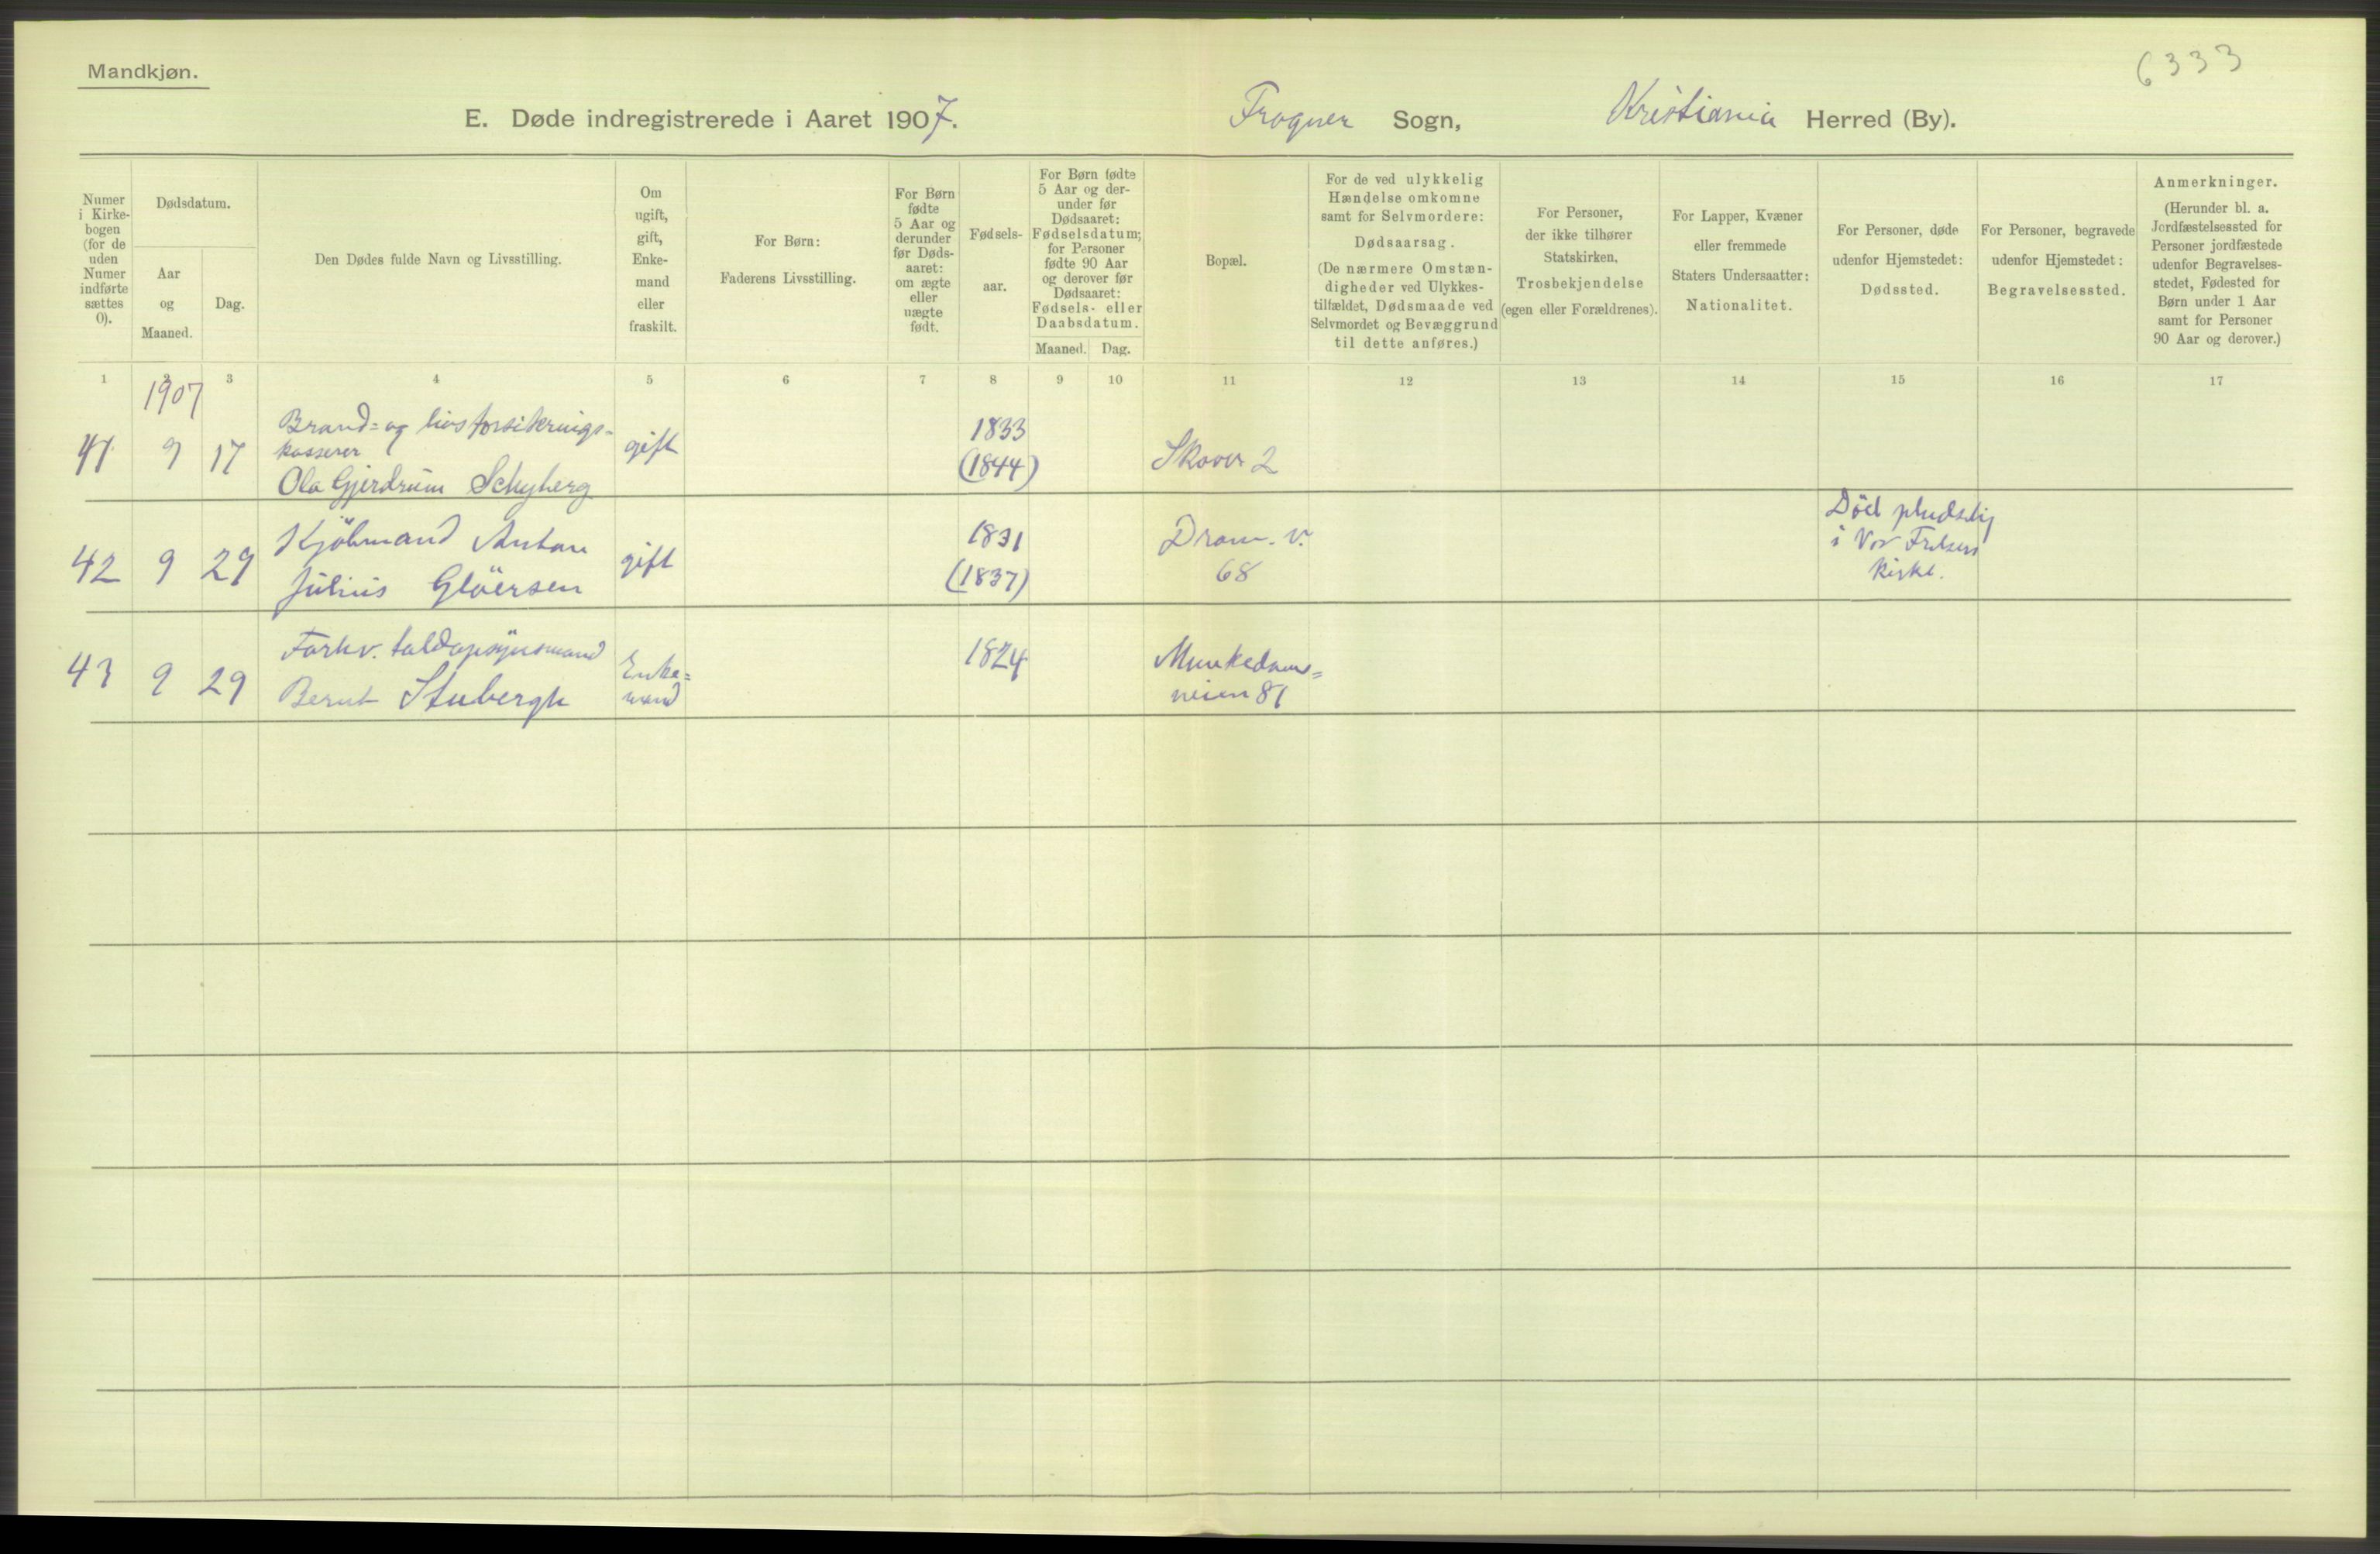 Mandkjøn.
6333
E. Døde indregistrerede i Aaret 1907. Frogner Sogn, Kristiania Herred (By).
Numer
i Kirke-
bogen
(for de
uden
Numer
indførte
sættes
0).
Dødsdatum.
Aar
og
Maaned.
Dag.
Den Dødes fulde Navn og Livsstilling.
Om
ugift,
gift,
Enke-
mand
eller
fraskilt.
For Børn:
Faderens Livsstilling.
For Børn
fødte
5 Aar og
derunder
før Døds-
aaret:
om ægte
eller
uægte
født.
Fødsels-
aar.
For Børn fødte
5 Aar og der-
under før
Dødsaaret:
Fødselsdatum;
for Personer
fødte 90 Aar
og derover før
Dødsaaret:
Fødsels- eller
Daabsdatum.
Maaned. Dag.
Bopæl.
For de ved ulykkelig
Hændelse omkomne
samt for Selvmordere:
Dødsaarsag.
(De nærmere Omstæn-
digheder ved Ulykkes-
tilfældet, Dødsmaade ved
Selvmordet og Bevæggrund
til dette anføres.)
For Personer,
der ikke tilhører
Statskirken,
Trosbekjendelse
(egen eller Forældrenes).
For Lapper, Kvæner
eller fremmede
Staters Undersaatter:
Nationalitet.
For Personer, døde
udenfor Hjemstedet:
Dødssted.
For Personer, begravede
udenfor Hjemstedet:
Begravelsessted.
Anmerkninger.
(Herunder bl. a.
Jordfæstelsessted for
Personer jordfæstede
udenfor Begravelses-
stedet, Fødested for
Børn under 1 Aar
samt for Personer
90 Aar og derover.)
1 2 3 4 5 6 7 8 9 10 11 12 13 14 15 16 17
1907
Brand= og livsforsikrings-
kasserer
Ola Gjerdrum Schyberg
41 9 17 gift
1833
(1844)
Skovv 2
Kjöbmand Anton
Julius Glöersen
42 9 29 gift
1831
(1837)
Dram. v.
68
Död pludslig
i Vor Frelsers
Kirke.
Forhv. toldopsynsmand
Bernt Stubergh
43 9 29
Enke=
mand
1824
Munkedams=
veien 81